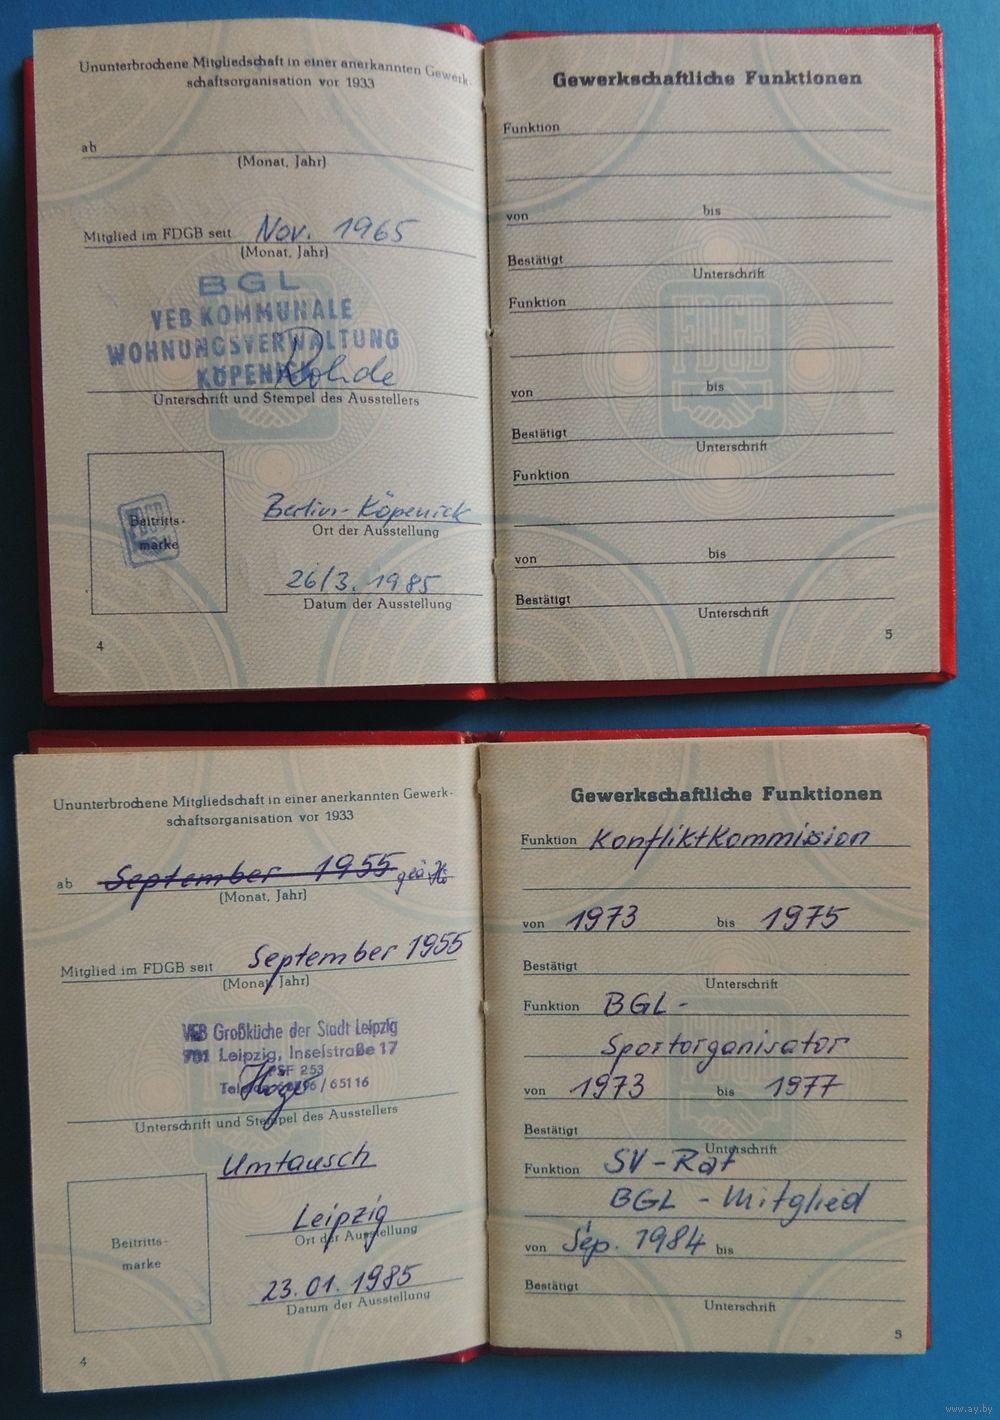 Ununterbrochene Mitgliedschaft in einer anerkannten Gewerk-
schaftsorganisation vor 1933
ab
(Monat, Jahr)
Mitglied im FDGB seit Nov. 1965
(Monat, Jahr)
BGL
VEB KOMMUNALE
WOHNUNGSVERWALTUNG
KÖPENICK
Rohde
Unterschrift und Stempel des Ausstellers
Beitritts-
marke
FDGB
Berlin-Köpenick
Ort der Ausstellung
26/3. 1985
Datum der Ausstellung
4
Gewerkschaftliche Funktionen
Funktion
von bis
Bestätigt
Unterschrift
Funktion
von bis
Bestätigt
Unterschrift
Funktion
von bis
Bestätigt
Unterschrift
FDGB
5
Ununterbrochene Mitgliedschaft in einer anerkannten Gewerk-
schaftsorganisation vor 1933
ab September 1955
(Monat, Jahr)
Mitglied im FDGB seit September 1955
(Monat, Jahr)
VEB Großküche der Stadt Leipzig
701 Leipzig, Inselstraße 17
PSF 253
/ 65116
Unterschrift und Stempel des Ausstellers
Umtausch
Beitritts-
marke
Leipzig
Ort der Ausstellung
23.01.1985
Datum der Ausstellung
4
Gewerkschaftliche Funktionen
Funktion Konfliktkommission
von 1973 bis 1975
Bestätigt
Unterschrift
Funktion BGL-
Sportorganisator
von 1973 bis 1977
Bestätigt
Unterschrift
Funktion SV-Rat
BGL - Mitglied
von Sep. 1984 bis
Bestätigt
Unterschrift
5
www.ay.by